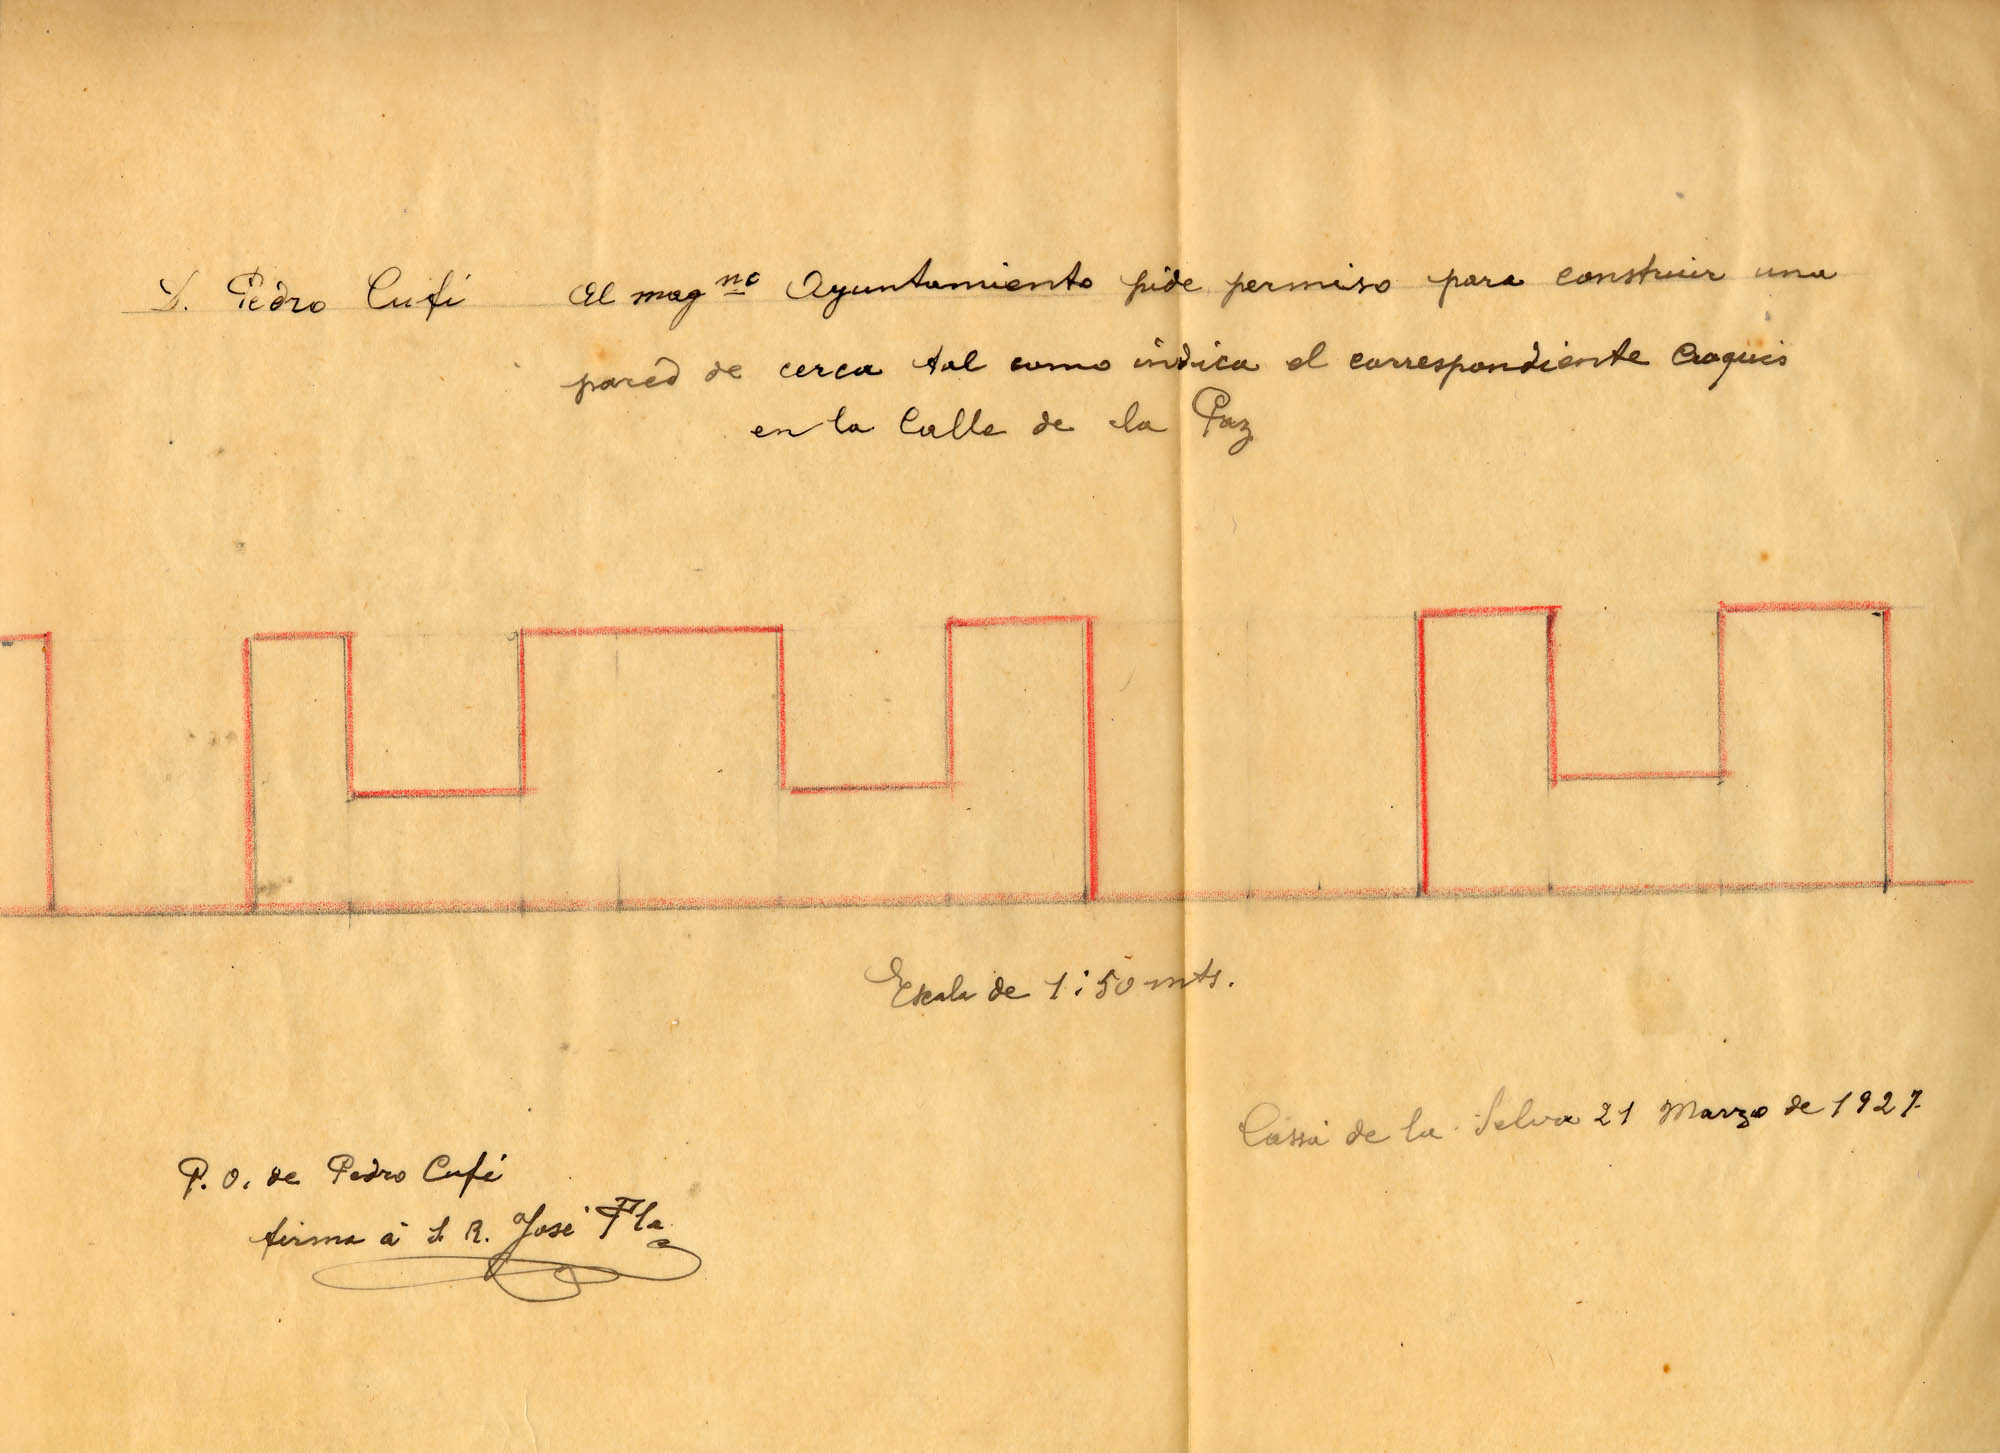 D. Pedro Cufí El magno Ayuntamiento pide permiso para construir una
pared de cerca tal como indica el correspondiente Croquis
en la Calle de la Paz
Escala de 1:50 mts.
Cassá de la Selva 21 Marzo de 1927.
P. O. de Pedro Cufí
firma á S. R. José Pla